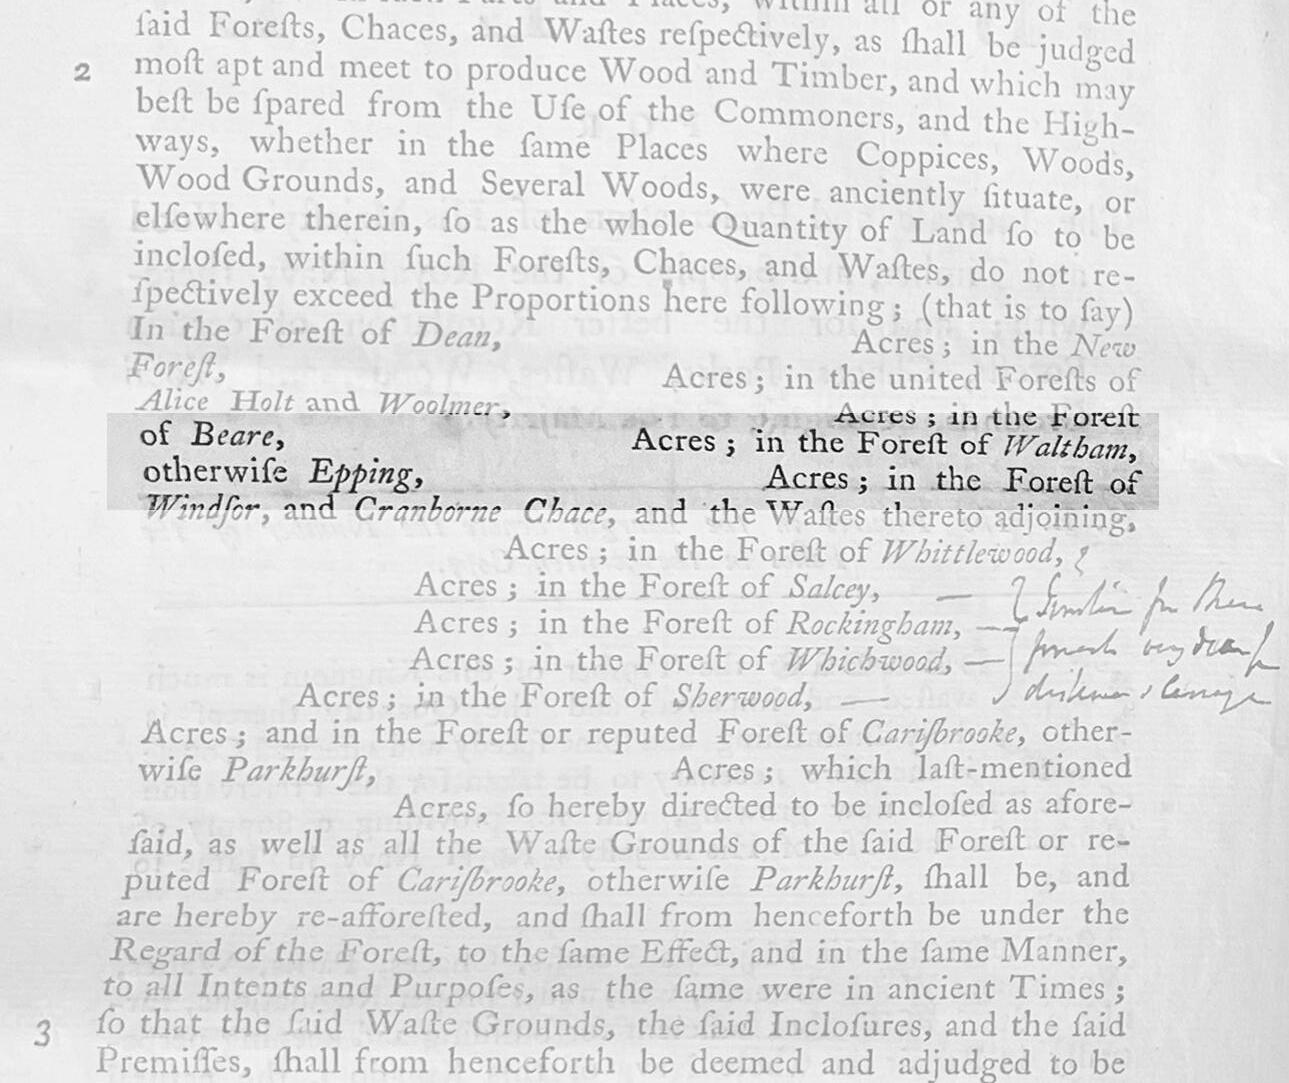 in such Parts and Places, within all or any of the
ſaid Foreſts, Chaces, and Waſtes reſpectively, as ſhall be judged
2 moſt apt and meet to produce Wood and Timber, and which may
beſt be ſpared from the Uſe of the Commoners, and the High-
ways, whether in the ſame Places where Coppices, Woods,
Wood Grounds, and Several Woods, were anciently ſituate, or
elſewhere therein, ſo as the whole Quantity of Land ſo to be
incloſed, within ſuch Foreſts, Chaces, and Waſtes, do not re-
ſpectively exceed the Proportions here following; (that is to ſay)
In the Foreſt of Dean, Acres; in the New
Foreſt, Acres; in the united Foreſts of
Alice Holt and Woolmer, Acres; in the Foreſt
of Beare, Acres; in the Foreſt of Waltham,
otherwiſe Epping, Acres; in the Foreſt of
Windſor, and Cranborne Chace, and the Waſtes thereto adjoining,
Acres; in the Foreſt of Whittlewood,
Acres; in the Foreſt of Salcey,
Acres; in the Foreſt of Rockingham,
Acres; in the Foreſt of Whichwood,
Acres; in the Foreſt of Sherwood,
Acres; and in the Foreſt or reputed Foreſt of Cariſbrooke, other-
wiſe Parkhurſt, Acres; which laſt-mentioned
Acres, ſo hereby directed to be incloſed as afore-
ſaid, as well as all the Waſte Grounds of the ſaid Foreſt or re-
puted Foreſt of Cariſbrooke, otherwiſe Parkhurſt, ſhall be, and
are hereby re-afforeſted, and ſhall from henceforth be under the
Regard of the Foreſt, to the ſame Effect, and in the ſame Manner,
to all Intents and Purpoſes, as the ſame were in ancient Times;
3 ſo that the ſaid Waſte Grounds, the ſaid Incloſures, and the ſaid
Premiſſes, ſhall from henceforth be deemed and adjudged to be